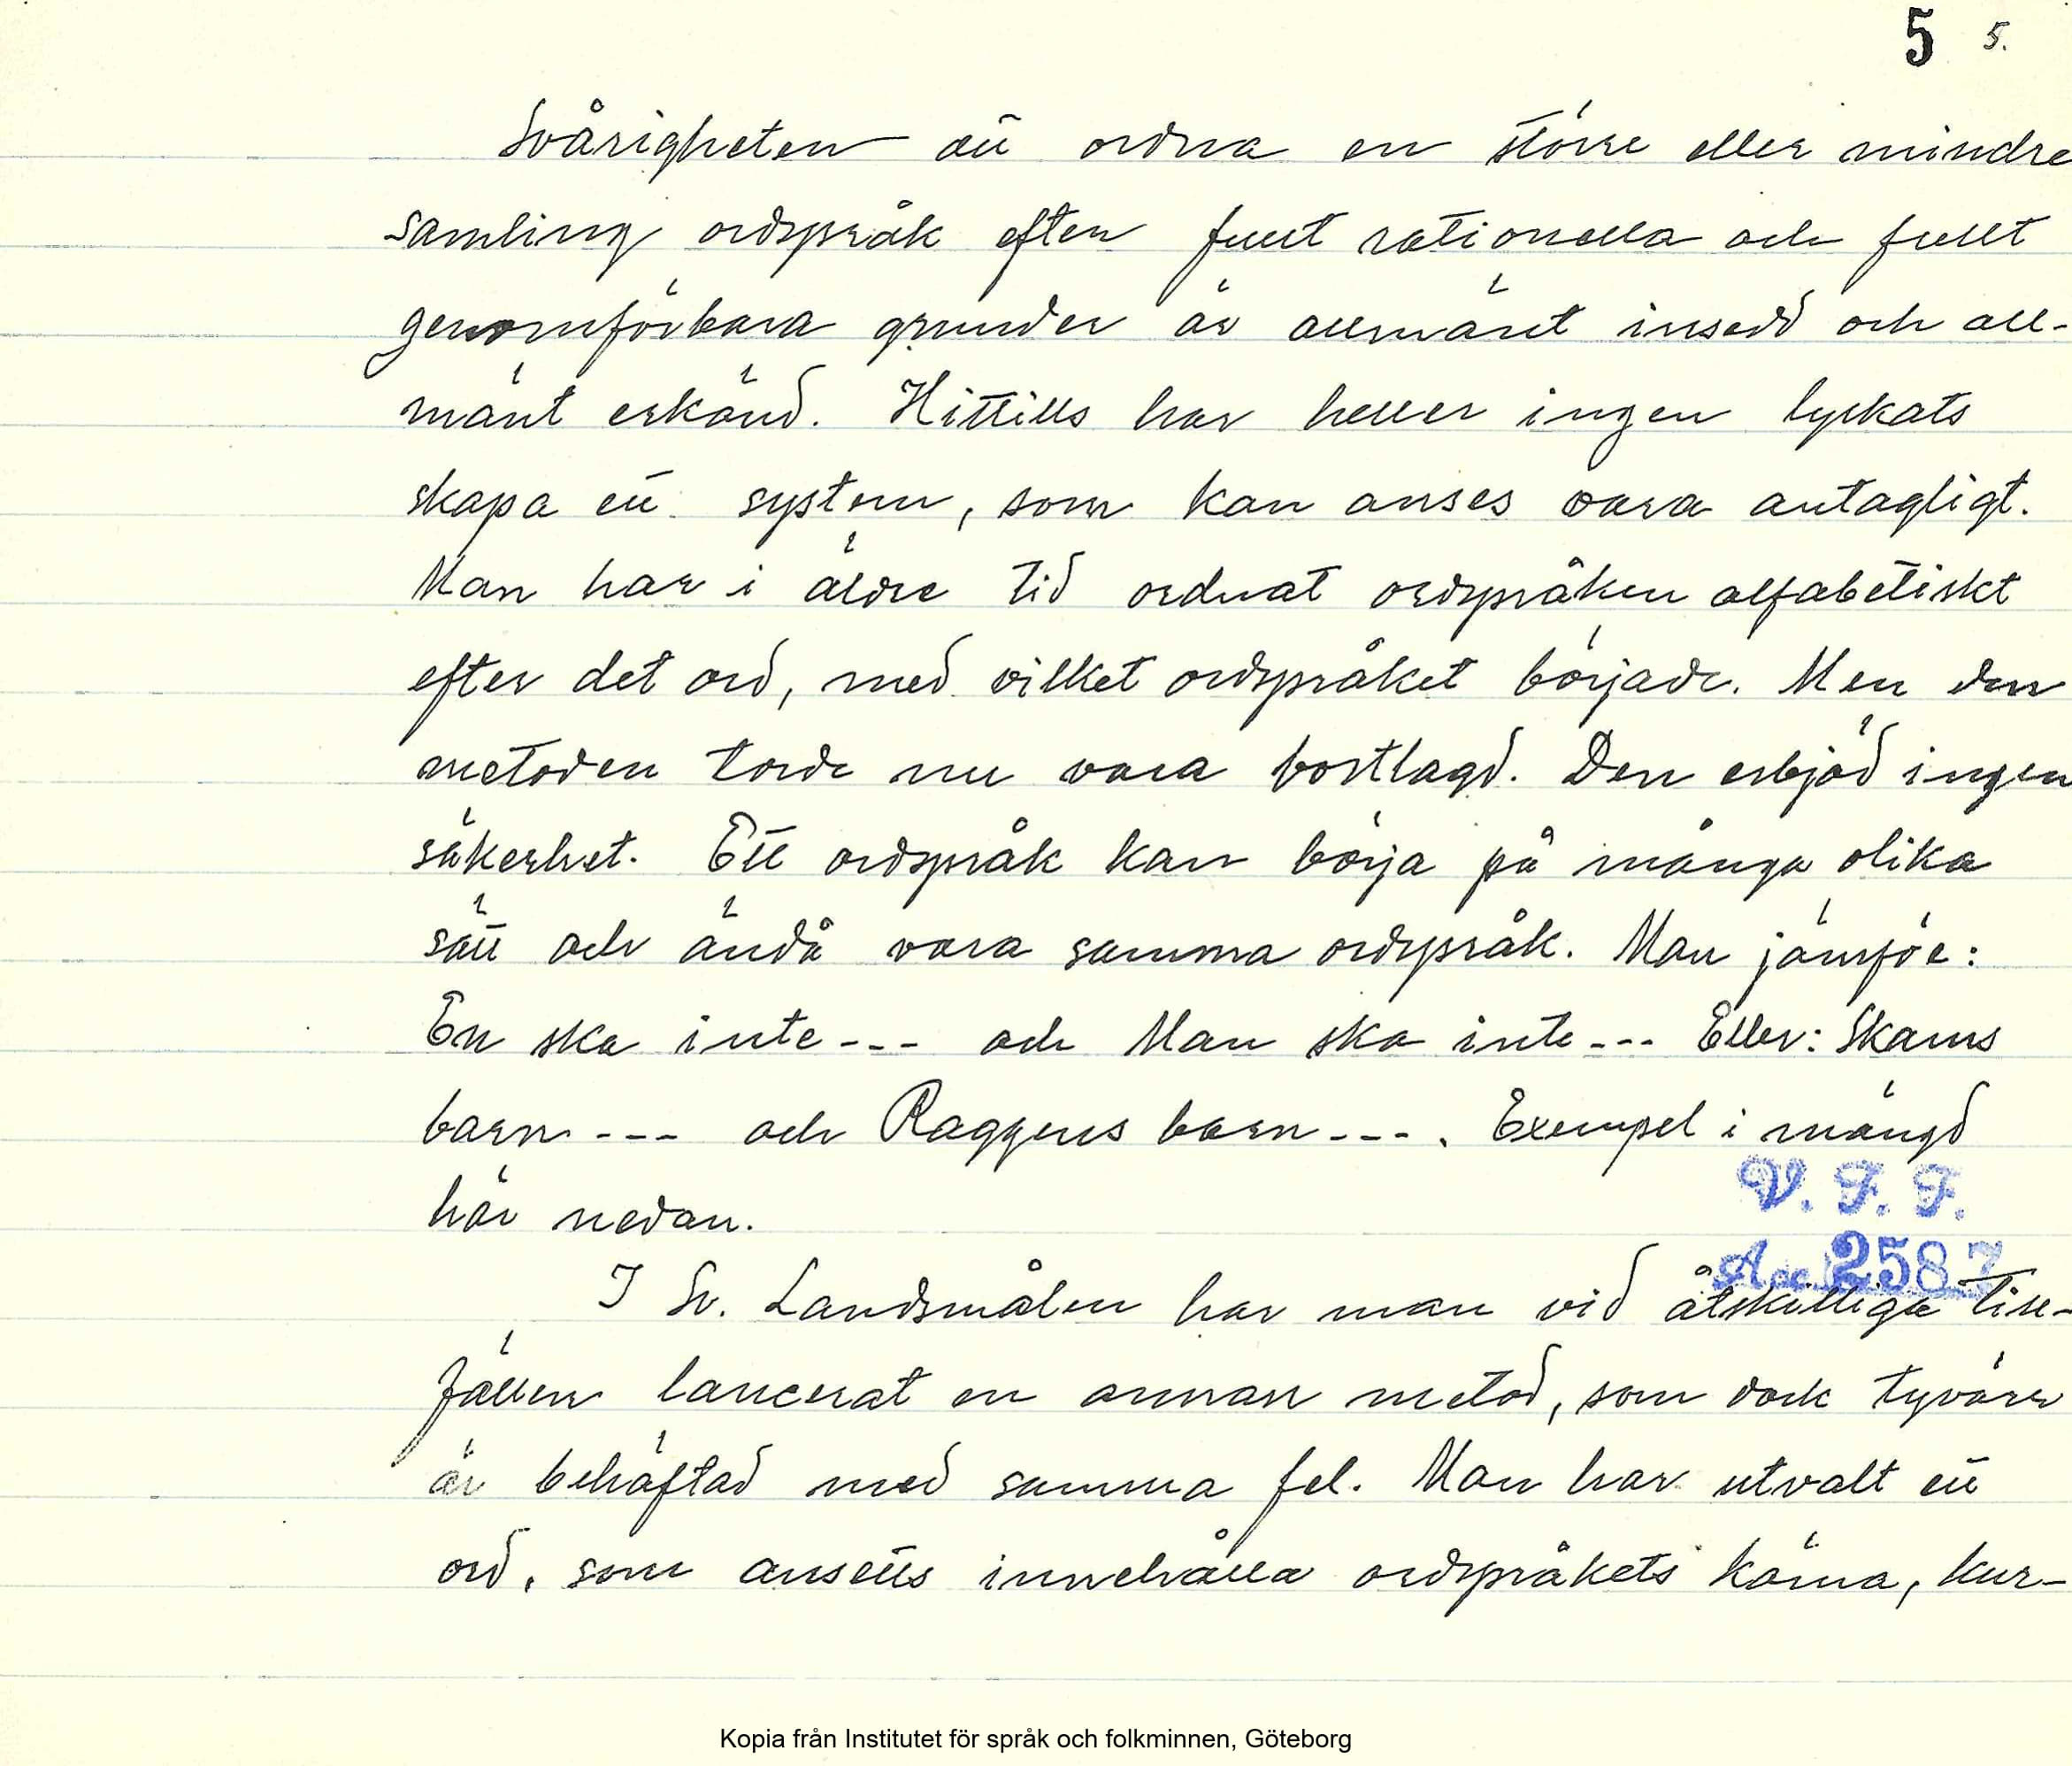 5 5.
Svårigheten att ordna en större eller mindre
samling ordspråk efter fullt rationella och fullt
genomförbara grunder är allmänt insedd och all-
mänt erkänd. Hittills har heller ingen lyckats
skapa ett system, som kan anses vara antagligt.
Man har i äldre tid ordnat ordspråken alfabetiskt
efter det ord, med vilket ordspråket började. Men den
metoden torde nu vara bortlagd. Den erbjöd ingen
säkerhet. Ett ordspråk kan börja på många olika
sätt och ändå vara samma ordspråk. Man jämföre:
En ska inte --- och Man ska inte --- Eller: Skams
barn --- och Raggens barn ---. Exempel i mängd
här nedan.
V. F. F.
Acc. 2587
I Sv. Landsmålen har man vid åtskilliga till-
fällen lancerat en annan metod, som dock tyvärr
är behäftad med samma fel. Man har utvalt ett
ord, som ansetts innehålla ordspråkets kärna, kur-
Kopia från Institutet för språk och folkminnen, Göteborg